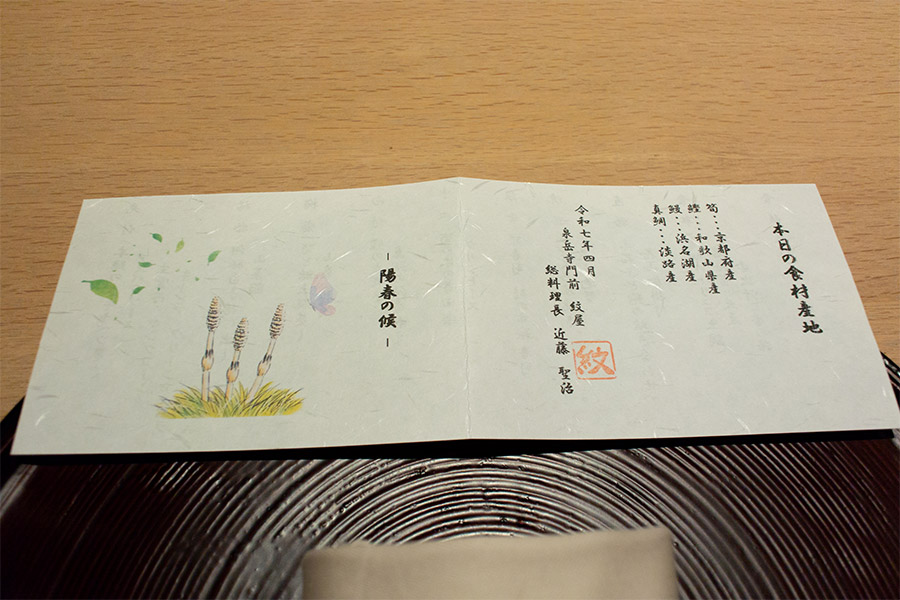 本日の食材産地
筍…京都府産
鰹…和歌山県産
鰻…浜名湖産
真鯛…淡路産
令和七年四月
泉岳寺門前 紋屋
総料理長 近藤 聖治
紋
－陽春の候－